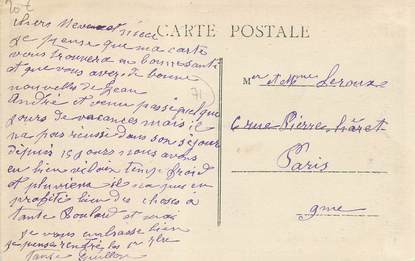 20 €
CARTE POSTALE
chers Neveu et nièce
je pense que ma carte
vous trouvera en bonne santé
et que vous avez de bonne
nouvelle de Jean
André et venue passé quelque
jours de vacances mais il
na pas réussi dans son séjour
depuis 15 jours nous avons
un bien vilain temps froid
et pluvieux il sen pas
profité bien des choses a
tante Boulard et moi
je vous embrasse bien
je pense rentré les
tante Guillon
71
Mr et Mme Leroux
6 rue Pierre Haret
Paris
9me